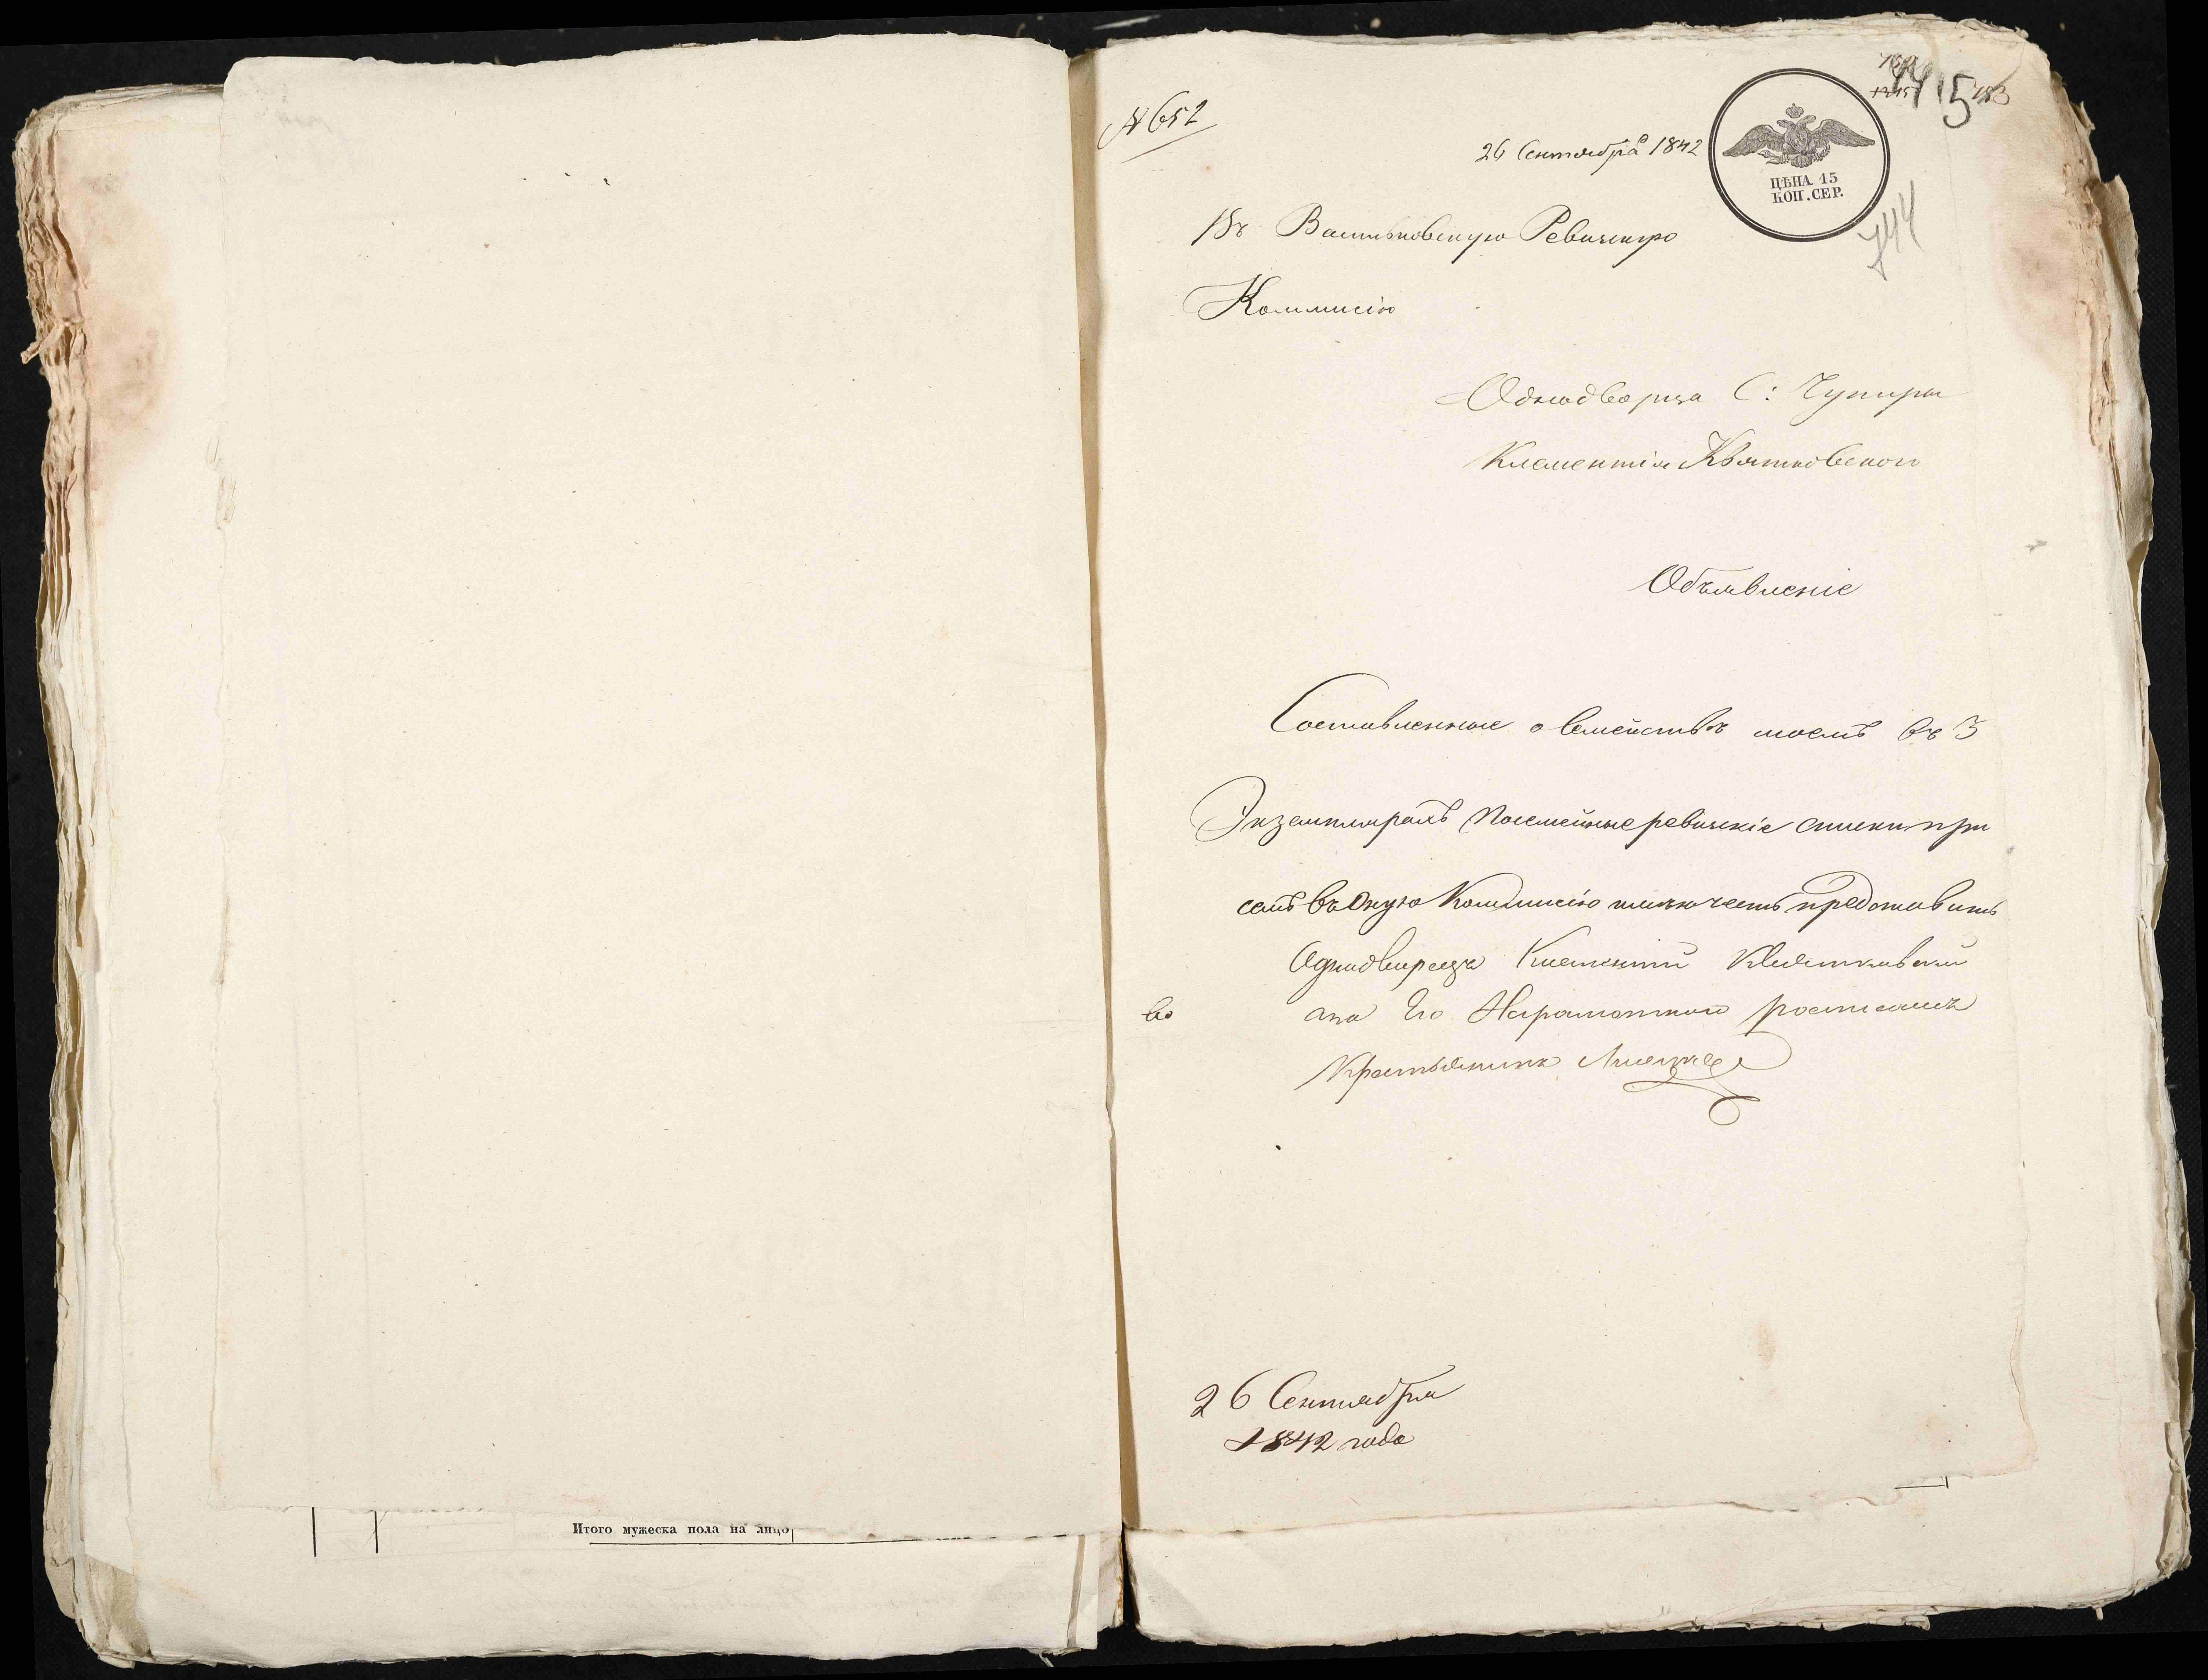 Итого мужеска пола на лицо
№ 652
715
26 Сентября 1842
ЦѢНА 15
КОП. СЕР.
744
Въ Васильковскую Ревизскую
Коммисію
Однодворца С: Чупиры
Клементія Квятковского
Объявленіе
Составленные о Семействѣ моемъ въ 3
Экземплярахъ Посемейные ревизскіе списки при
семъ въ Оную Коммисію имѣю честь представить
Однодворецъ Клементій Квятковский
а на Его Неграмотного росписался
во
Крестьянинъ
26 Сентября
1842 года